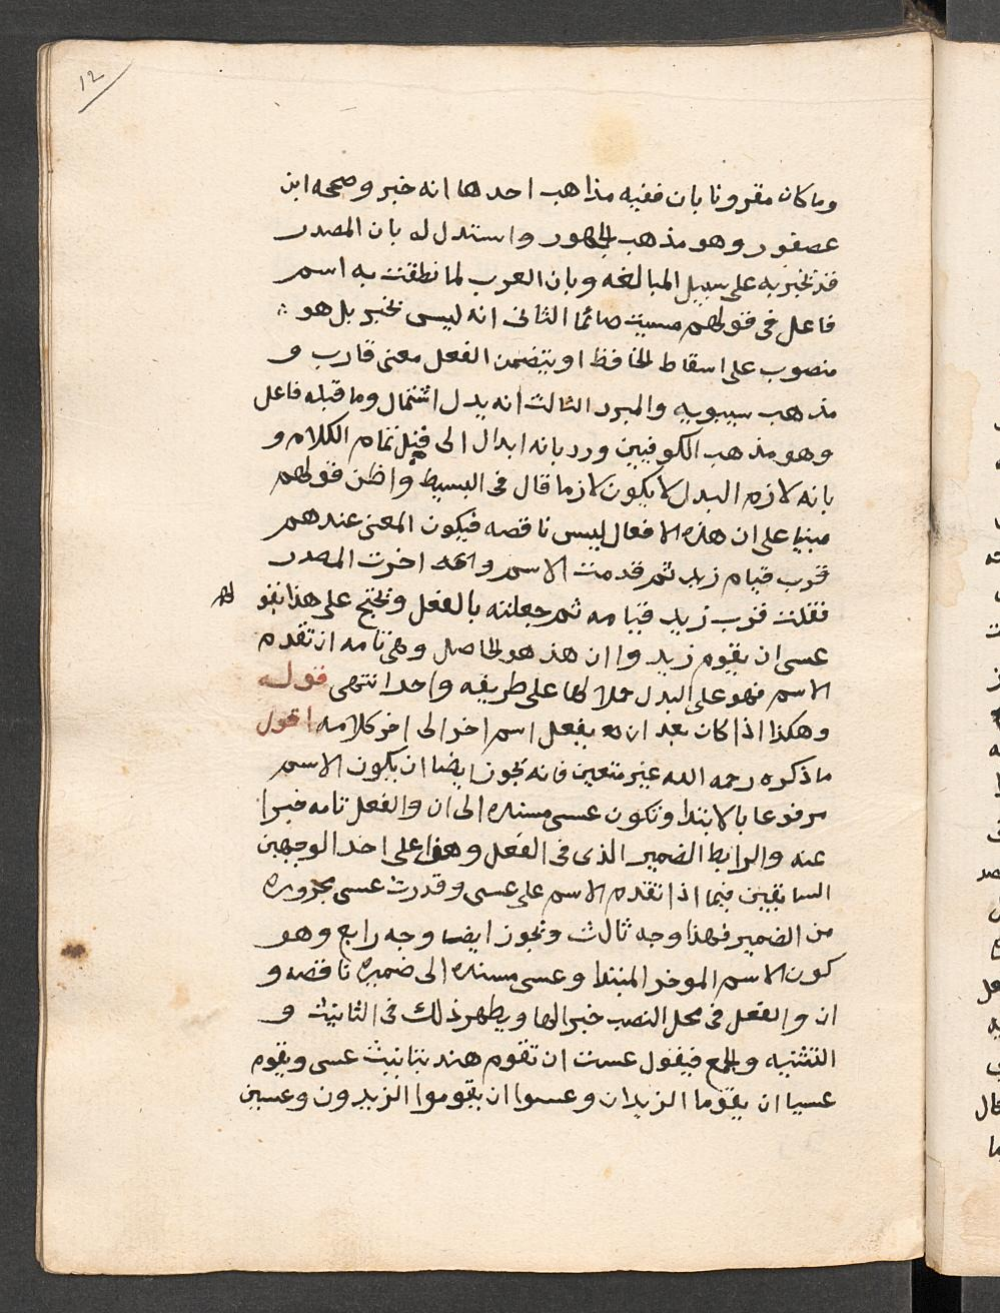 12
وما كان مقرونا بان ففيه مذاهب احدها انه خبر وصححه ابن
عصفور وهو مذهب الجمهور واستدل له بان المصدر
قد تخبر به على سبيل المبالغه وبان العرب لما نطقت به اسم
فاعل فى قولهم عسيت صائما الثانى انه ليس بخبر بل هو
منصوب على اسقاط الخافظ او بتضمن الفعل معنى قارب و
مذهب سيبويه والمبرد الثالث انه بدل اشتمال وما قبله فاعل
وهو مذهب الكوفيين ورد بانه ابدال الى قبل تمام الكلام و
بانه لازم البدل لا يكون لازما قال فى البسيط واظن قولهم
مبنيا على ان هذه الافعال ليس ناقصه فيكون المعنى عندهم
قرب قيام زيد ثم قدمت الاسم و اخرت المصدر
فقلت قرب زيد قيامه ثم جعلته بالفعل وتحتج على هذا بقو لهم
عسى ان يقوم زيد وان هذ هو الحاصل وهى تامه ان تقدم
الاسم فهو على البدل حملا لها على طريقه واحدا انتهى قوله
وهكذا اذا كان بعد ان يفعل اسم اخر الى اخر كلامه اقول
ما ذكره رحمه الله غير متعين فانه تجوز ايضا ان يكون الاسم
مرفوعا بالابتدا وتكون عسى مسنده الى ان والفعل تامه خبرا
عنه والرابط الضمير الذى فى الفعل وهذا على احد الوجهين
السابقين فيما اذا تقدم الاسم على عسى وقدرت عسى مجروره
من الضمير فهذا وجه ثالث وتجوز ايضا وجه رابع وهو
كون الاسم الموخر المبتدا وعسى مسنده الى ضميره ناقصه و
ان والفعل فى محل النصب خبرا لها ويظهر ذلك فى التانيث و
التثنيه والجمع فيقول عست ان تقوم هند بتانيث عسى ويقوم
عسيا ان يقوما الزيدان وعسوا ان يقوموا الزيدون وعسين